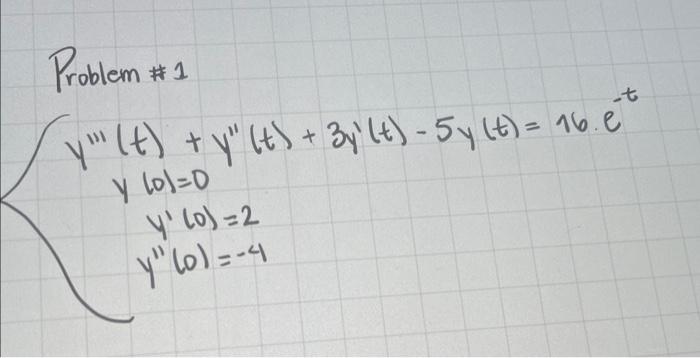 Problem #1
y'''(t) + y''(t) + 3y'(t) - 5y(t) = 16.e^-t
y(0)=0
y'(0)=2
y''(0)=-4